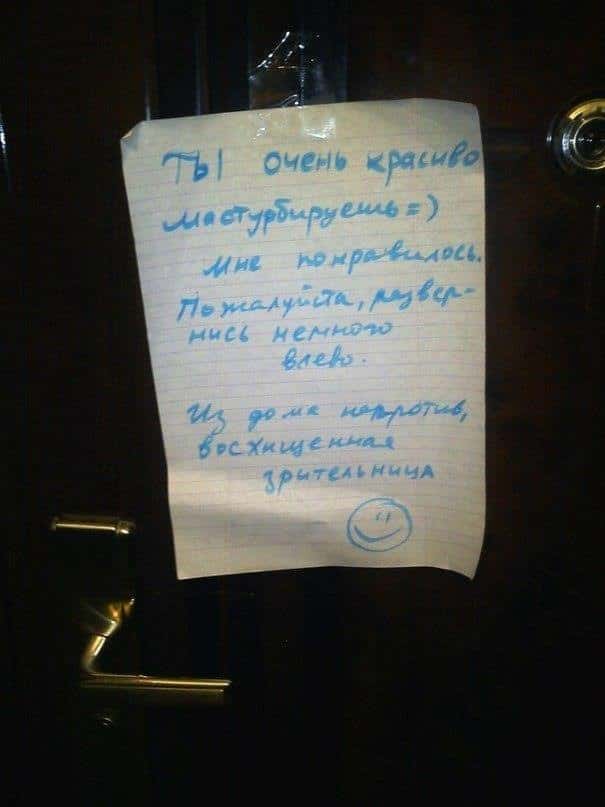 Ты очень красиво
мастурбируешь =)
Мне понравилось.
Пожалуйста, развер-
нись немного
влево.
Из дома напротив,
восхищенная
зрительница